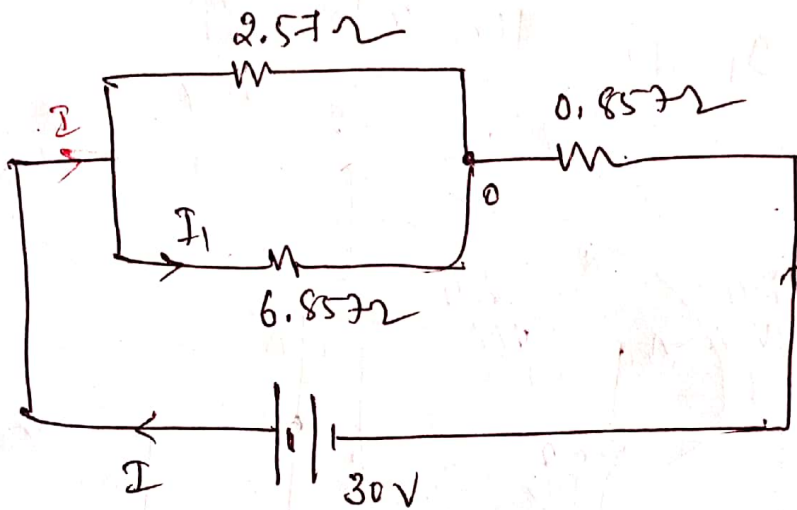 2.57Ω
I
0.857Ω
0
I₁
6.857Ω
I
30V